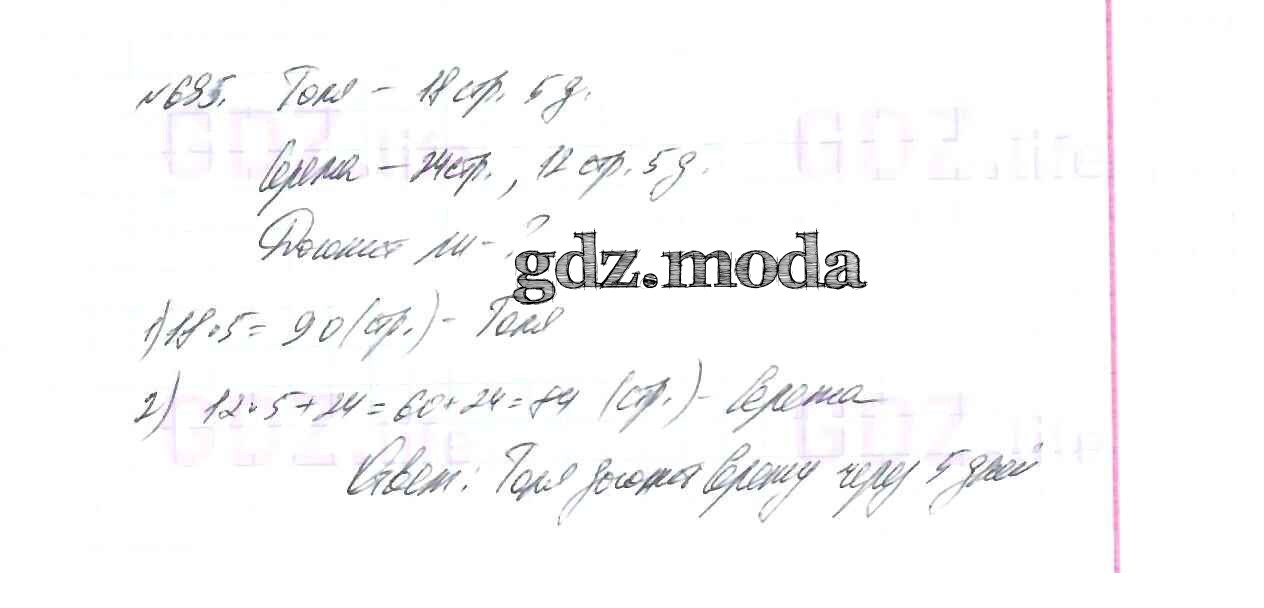 №695. Толя – 18 стр. 5 д.
GDZ.life GDZ.life
Сережа – 24 стр., 12 стр. 5 д.
Догонит ли – ?
gdz.moda
1) 18·5 = 90 (стр.) – Толя
2) 12·5+24 = 60+24 = 84 (стр.) – Сережа
GDZ.life GDZ.life
Ответ: Толя догонит Сережу через 5 дней